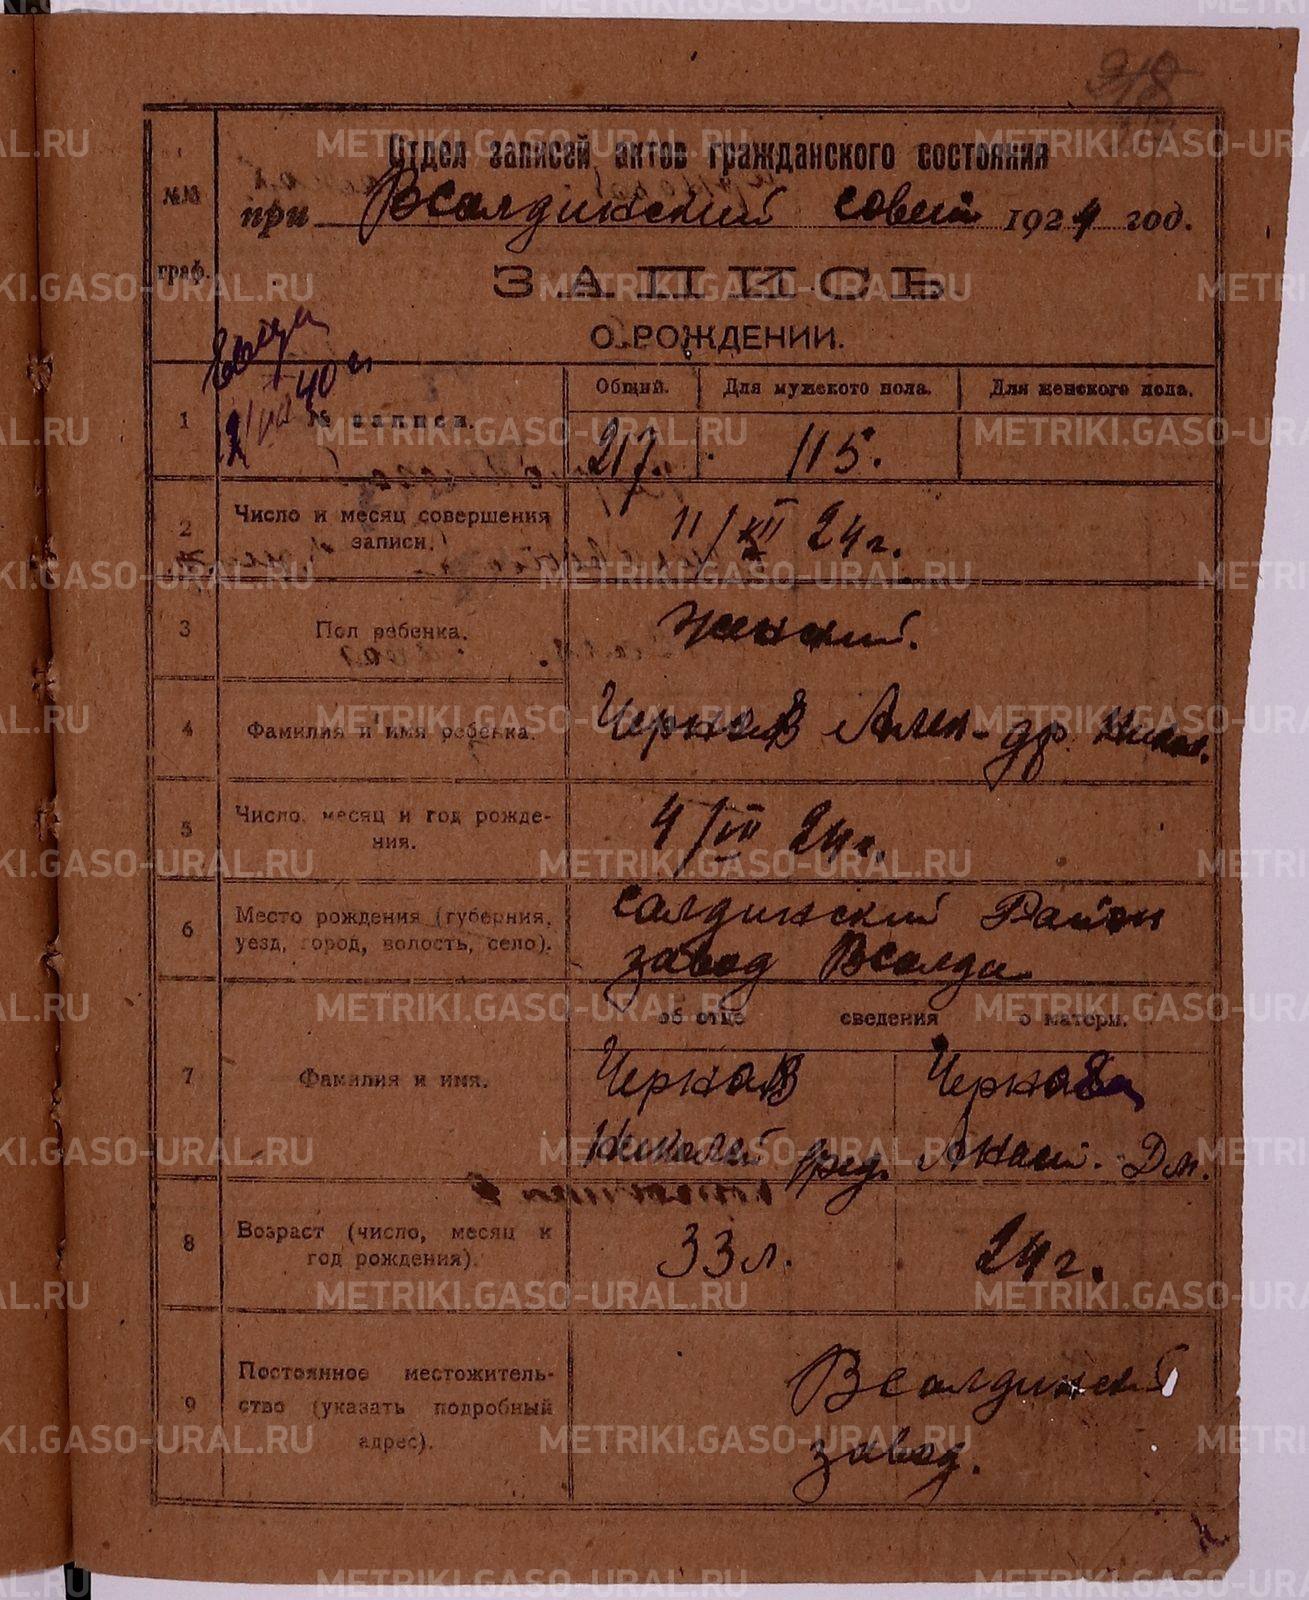 Отдел записей актов гражданского состояния
при ВСалдинский совет 1924 год.
№№
граф.
ЗАПИСЬ
О РОЖДЕНИИ.
Общий. Для мужского пола. Для женского пола.
1 № записи. 217. 115.
2 Число и месяц совершения
записи. 11/XII 24 г.
3 Пол ребенка. Женский.
4 Фамилия и имя ребенка. Чернов Алек-др. Никол.
5 Число, месяц и год рожде-
ния. 4/VII 24 г.
6 Место рождения (губерния,
уезд, город, волость, село).
Салдинский Район
завод ВСалда
об отце сведения о матери.
7 Фамилия и имя.
Чернов Чернова
Николай Анаст. Дм.
8 Возраст (число, месяц и
год рождения). 33 л. 24 г.
9 Постоянное местожитель-
ство (указать подробный
адрес).
ВСалдинский
завод.
METRIKI.GASO-URAL.RU